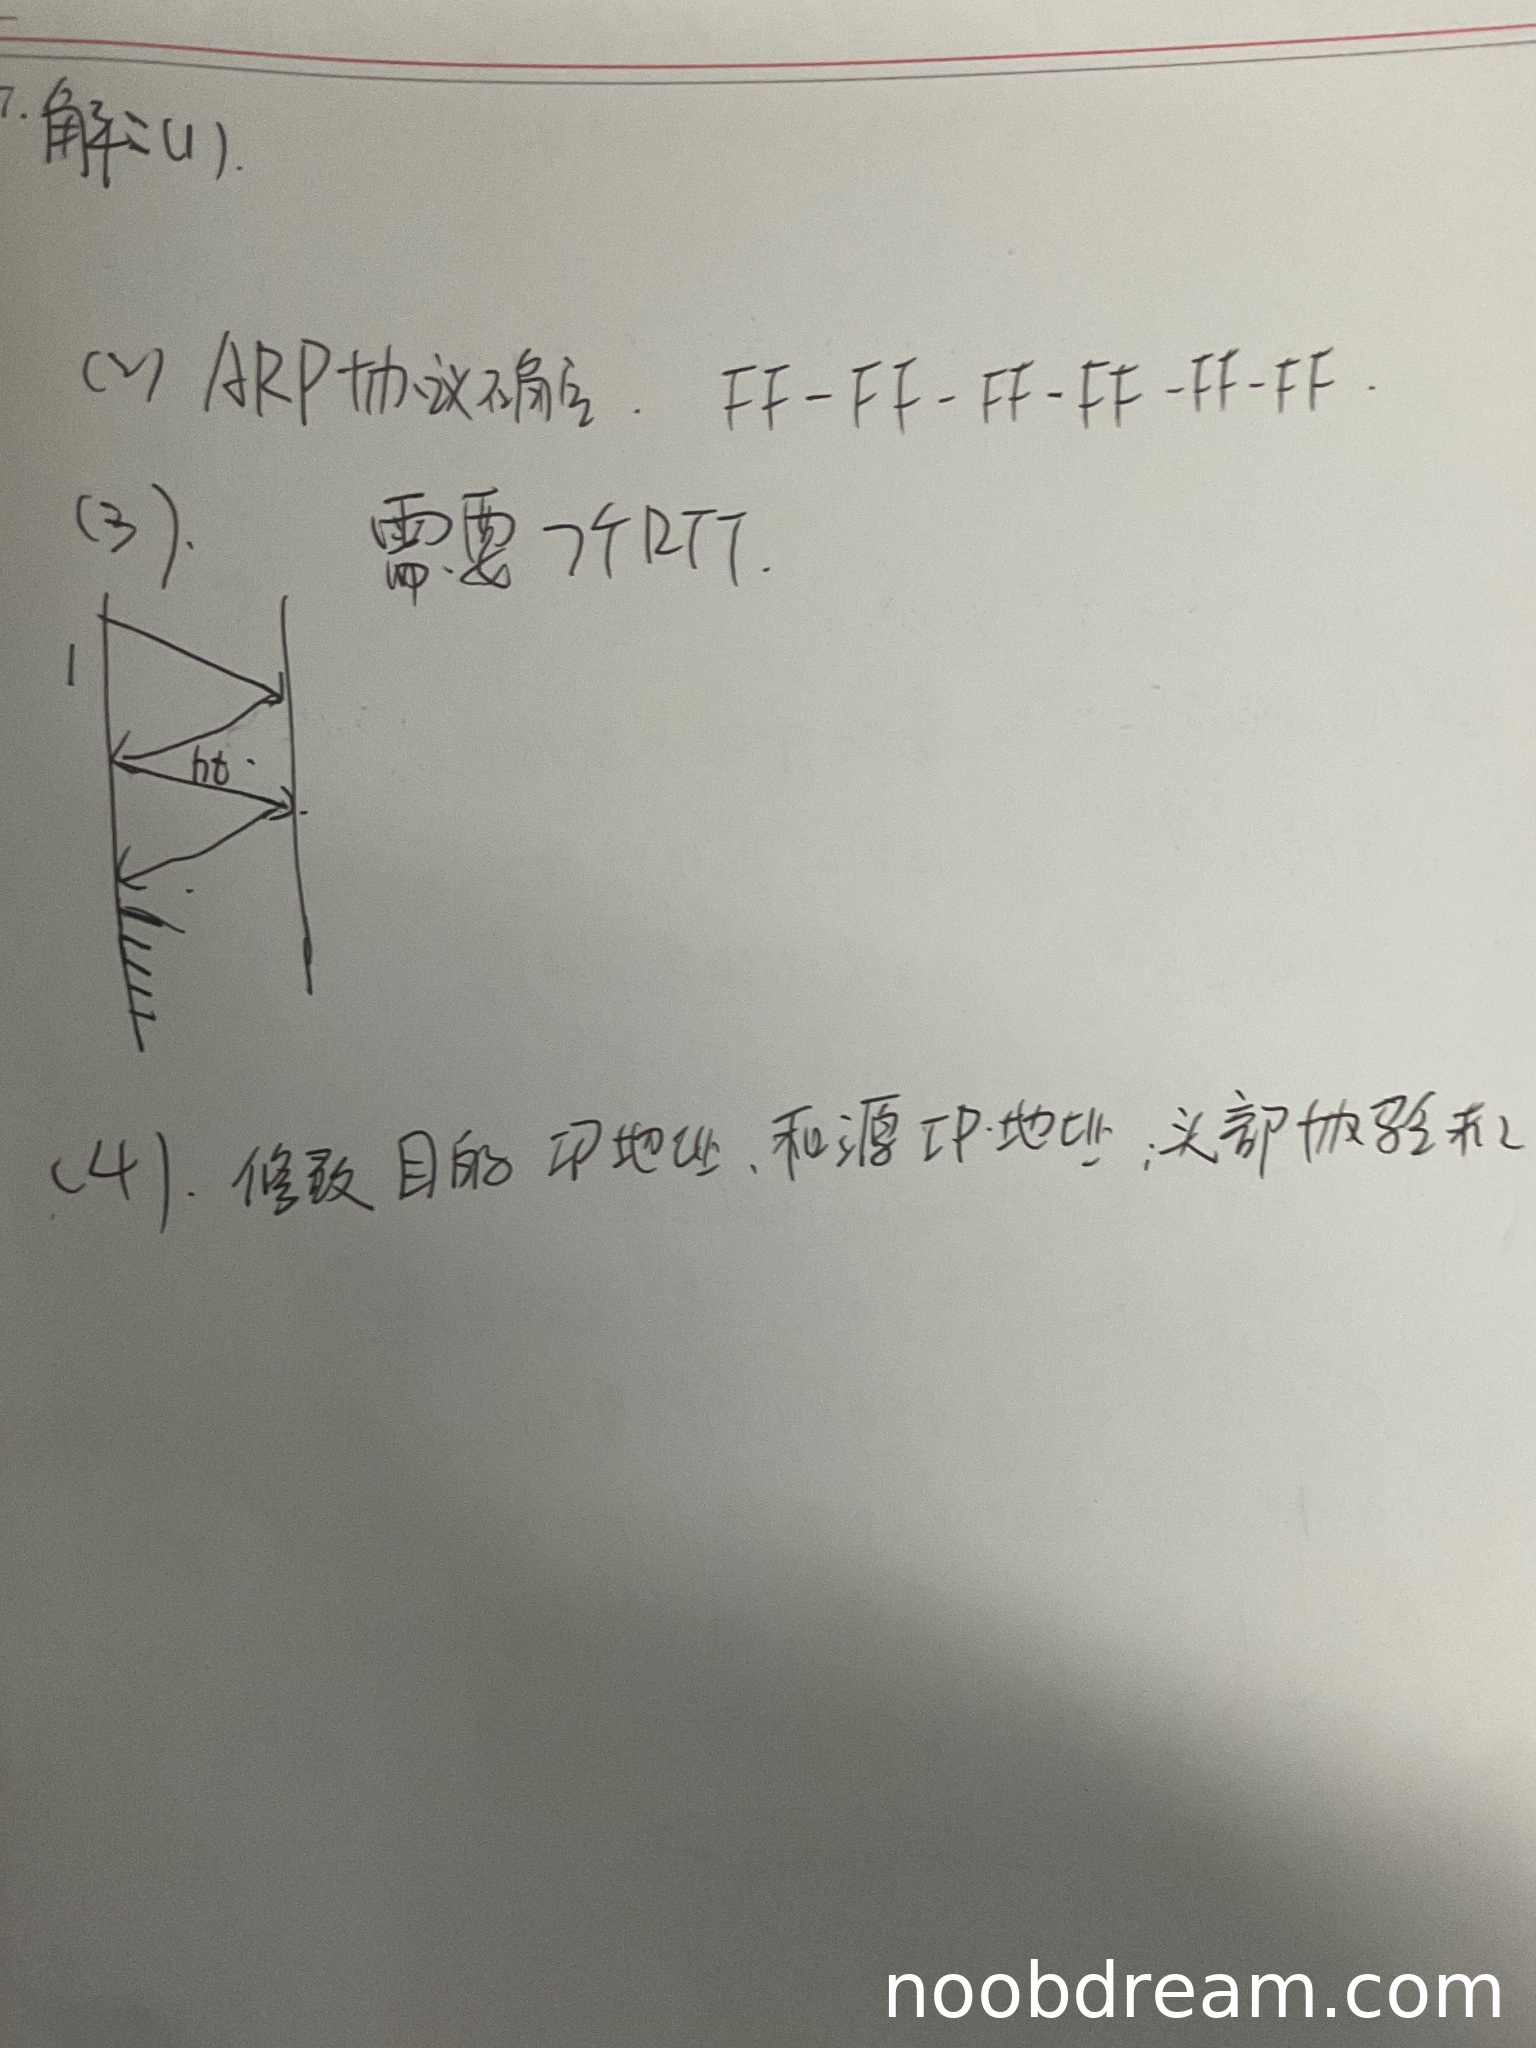 7. 解:(1).
(2) ARP协议确定. FF-FF-FF-FF-FF-FF.
(3). 需要7个RTT.
1
(4). 修改目的IP地址、和源IP地址,头部校验和
noobdream.com